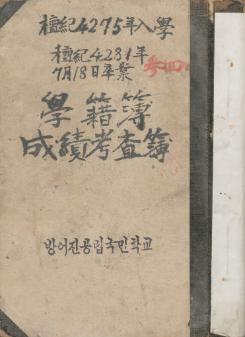 檀紀4275年入學
檀紀4281年
7月18日卒業
學籍簿
成績考査簿
방어진공립국민학교